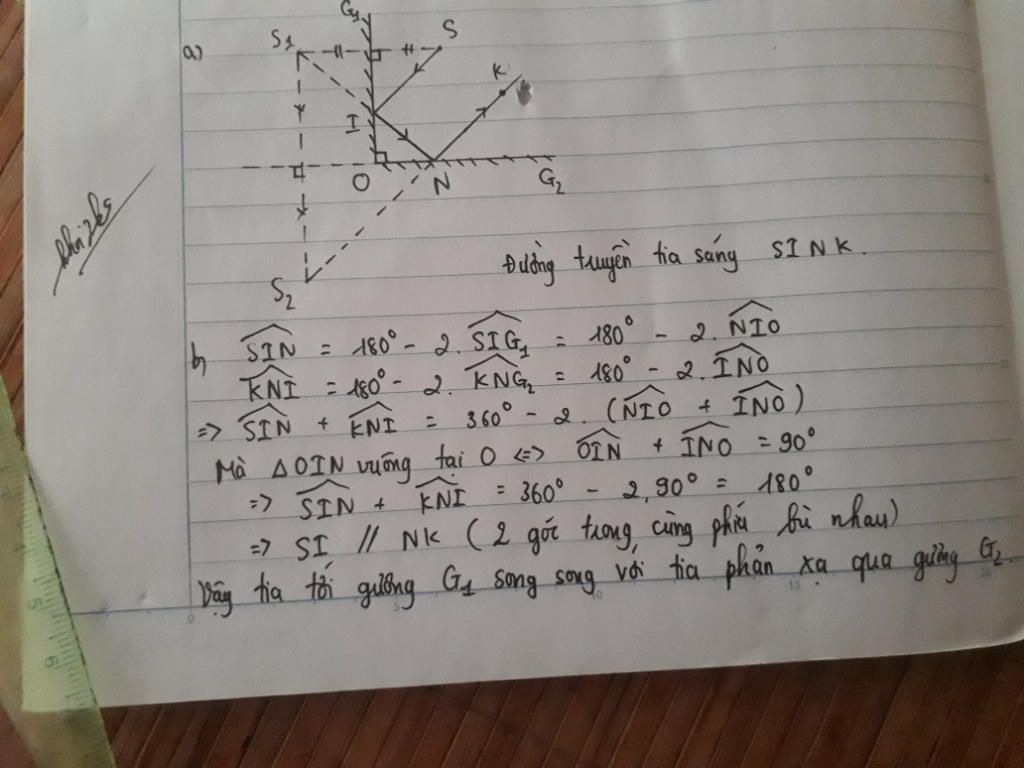 a)
S₁
G₁
S
K
I
O
N
G₂
S₂
Đường truyền tia sáng SINK.
b, \widehat{SIN} = 180° - 2. \widehat{SIG₁} = 180° - 2. \widehat{NIO}
\widehat{KNI} = 180° - 2. \widehat{KNG₂} = 180° - 2. \widehat{INO}
=> \widehat{SIN} + \widehat{KNI} = 360° - 2. (\widehat{NIO} + \widehat{INO})
Mà ΔOIN vuông tại O <=> \widehat{OIN} + \widehat{INO} = 90°
=> \widehat{SIN} + \widehat{KNI} = 360° - 2.90° = 180°
=> SI // NK (2 góc trong cùng phía bù nhau)
Vậy tia tới gương G₁ song song với tia phản xạ qua gương G₂.
0 5 10 15 20
5
6